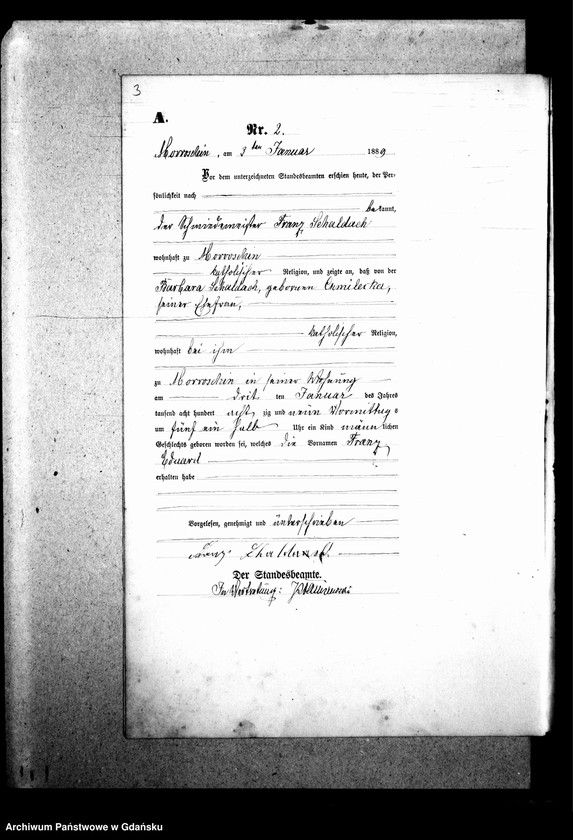 3
A.
Nr. 2.
Morroschin, am 3ten Januar 1889
Vor dem unterzeichneten Standesbeamten erschien heute, der Per-
sönlichkeit nach
bekannt,
der Schmiedemeister Franz Schaldach
wohnhaft zu Morroschin
katholischer Religion, und zeigte an, daß von der
Barbara Schaldach, gebornen
seiner Ehefrau,
katholischer Religion,
wohnhaft bei ihm
zu Morroschin in seiner Wohnung
am drit ten Januar des Jahres
tausend acht hundert acht zig und neun Vormittags
um fünf ein halb Uhr ein Kind männlichen
Geschlechts geboren worden sei, welches die Vornamen Franz
Eduard
erhalten habe
Vorgelesen, genehmigt und unterschrieben
Franz
Der Standesbeamte.
In Vertretung:
Archiwum Państwowe w Gdańsku